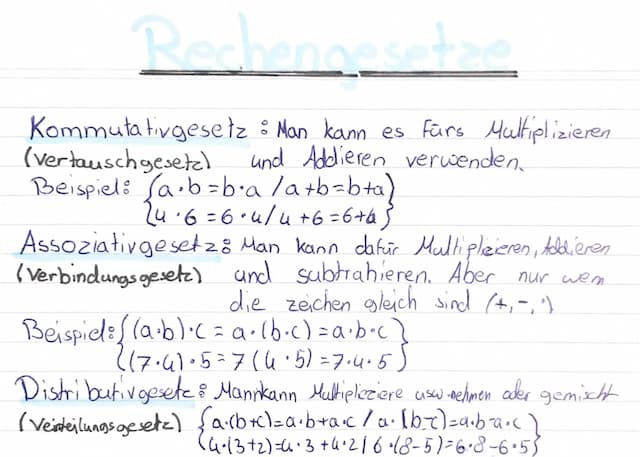 Rechengesetze
Kommutativgesetz : Man kann es fürs Multiplizieren
(Vertauschgesetz) und Addieren verwenden.
Beispiel: {a·b=b·a / a+b=b+a}
{4·6=6·4/4+6=6+4}
Assoziativgesetz: Man kann dafür Multiplizieren, Addieren
(Verbindungsgesetz) und subtrahieren. Aber nur wenn
die zeichen gleich sind (+,-,·)
Beispiel: {(a·b)·c = a·(b·c) = a·b·c}
{(7·4)·5 = 7(4·5) = 7·4·5}
Distributivgesetz: Mann kann Multipliziere usw. nehmen oder gemischt
(Verteilungsgesetz) {a·(b+c)=a·b+a·c / a·(b-c)=a·b-a·c
4·(3+2)=4·3+4·2/6·(8-5)=6·8-6·5}